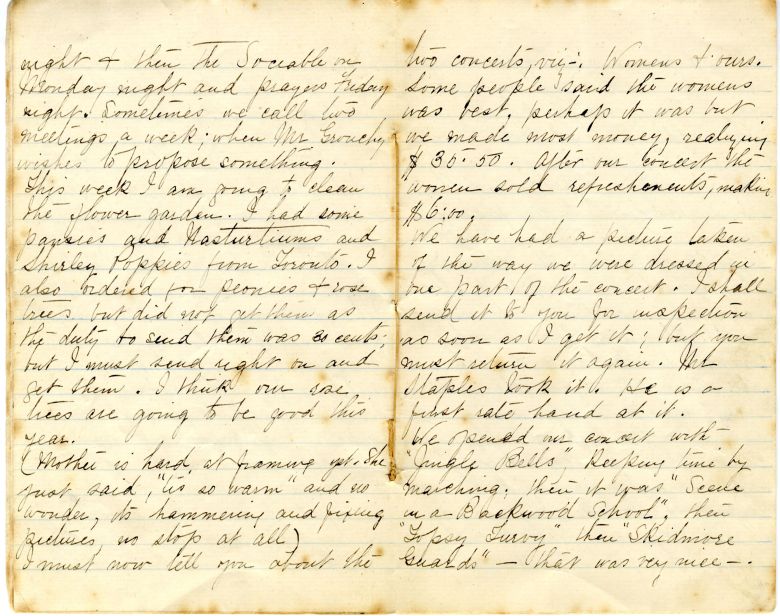 night & then the Sociable on
Monday night and prayers Friday
night. Sometimes we call two
meetings a week; when Mr Grouchy
wishes to propose something.
This week I am going to clean
the flower garden. I had some
pansies and Nasturtiums and
Shirley Poppies from Toronto. I
also ordered for peonies & rose
trees but did not get them as
the duty to send them was 20 cents;
but I must send right on and
get them. I think our rose
trees are going to be good this
year.
(Mother is hard, at framing yet. She
just said, "tis so warm" and no
wonder, its hammering and fixing
pictures, no stop at all)
I must now tell you about the
two concerts, viz-: Womens & ours.
Some people said the womens
was best, perhaps it was but
we made most money, realizing
$35.50. After our concert the
women sold refreshements, making
$6:00.
We have had a picture taken
of the way we were dressed in
one part of the concert. I shall
send it to you for inspection
as soon as I get it; but you
must return it again. Mr
Staples took it. He is a
first rate hand at it.
We opened our concert with
"Jingle Bells", keeping time by
marching; then it was "Scene
in a Backwood School", then
"Topsy Turvy" then "Skidmore
Guards" — that was very nice —.